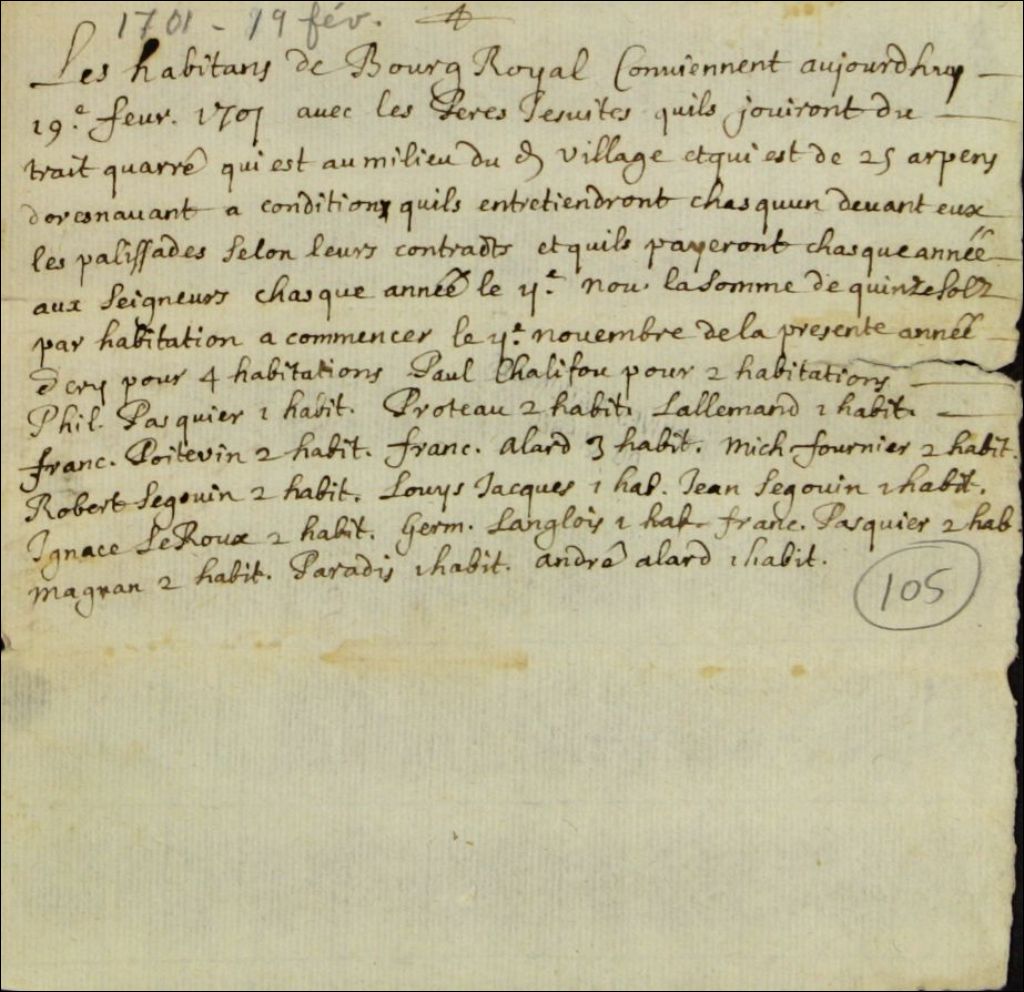 1701 - 19 fév.
Les habitans de Bourg Royal Conviennent aujourdhuy
19.e feur. 1701 auec les Peres Jesuites quils jouiront du
trait quarré qui est au milieu du d village et qui est de 25 arpens
doresnauant a condition quils entretiendront chasquun deuant eux
les palissades selon leurs contradts et quils payeront chasque année
aux seigneurs chasque année le 11.e nou. la somme de quinze solz
par habitation a commencer le 11.e nouembre de la presente année
pour 4 habitations Paul Chalifou pour 2 habitations
Phil. Pasquier 1 habit. Proteau 2 habit. Lallemand 1 habit.
franc. Poitevin 2 habit. franc. alard 3 habit. Mich. fournier 2 habit.
Robert Segouin 2 habit. Louys Jacques 1 hab. Jean Segouin 1 habit.
Ignace LeRoux 2 habit. Germ. Langlois 1 hab. franc. Pasquier 2 hab.
magnan 2 habit. Paradis 1 habit. andré alard 1 habit.
105